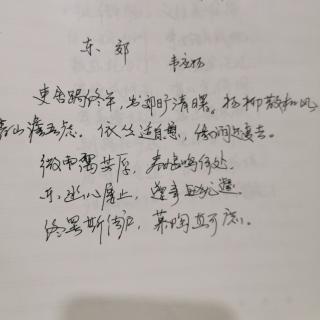 东 郊
韦应物
吏舍跼终年,出郊旷清曙。杨柳散和风
青山澹吾虑。依丛适自憩,缘涧还复去。
微雨霭芳原,春鸠鸣何处。
乐幽心屡止,遵事迹犹遽。
终罢斯结庐,慕陶直可庶。